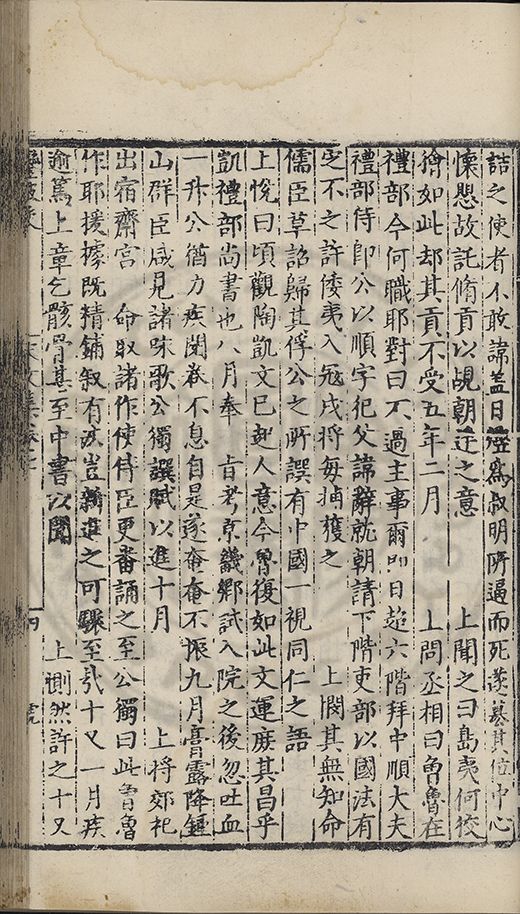 詰之使者不敢諱盖日熞爲叔明所逼而死遂篡其位中心
懷愳故託脩貢以覘朝廷之意　上聞之曰島夷何狡
獪如此却其貢不受五年二月　上問丞相曰魯魯在
禮部今何職耶對曰不過主事爾即日超六階拜中順大夫
禮部侍郎公以順字犯父諱辭就朝請下階吏部以國法有
㝎不之許倭夷入寇戍將每捕獲之　上閔其無知命
儒臣草詔歸其俘公之所譔有中國一視同仁之語
上悅曰頃觀陶凱文已起人意今魯復如此文運庶其昌乎
凱禮部尚書也八月奉　旨考京畿鄉試入院之後忽吐血
一升公猶力疾閱卷不息自是遂奄奄不振九月膏露降鍾
山群臣咸見諸咏歌公獨譔賦以進十月　上將郊祀
出宿齋宮　命取諸作使侍臣更番誦之至公獨曰此魯魯
作耶援據既精鋪叙有法豈新進之可驟至㢤十又一月疾
逾篤上章乞骸骨甚至中書以聞　上惻然許之十又